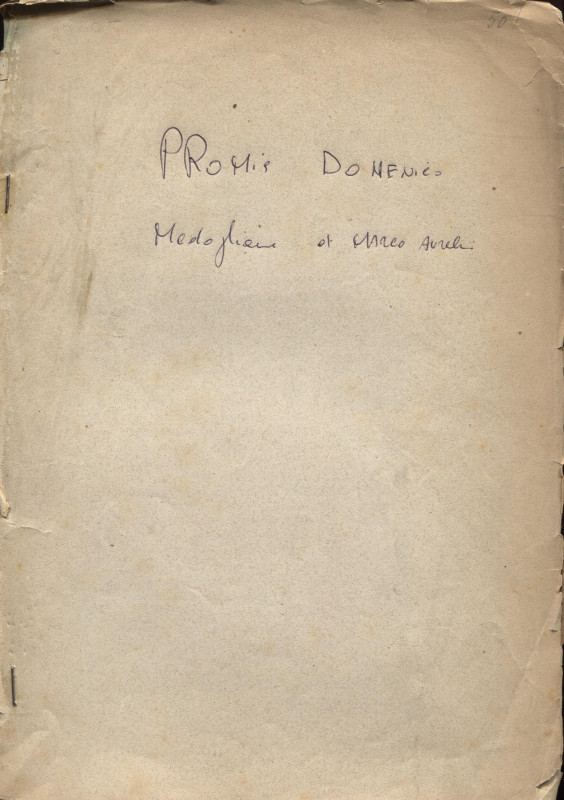 50
PROMIS DOMENICO
Medaglione di Marco Aurelio